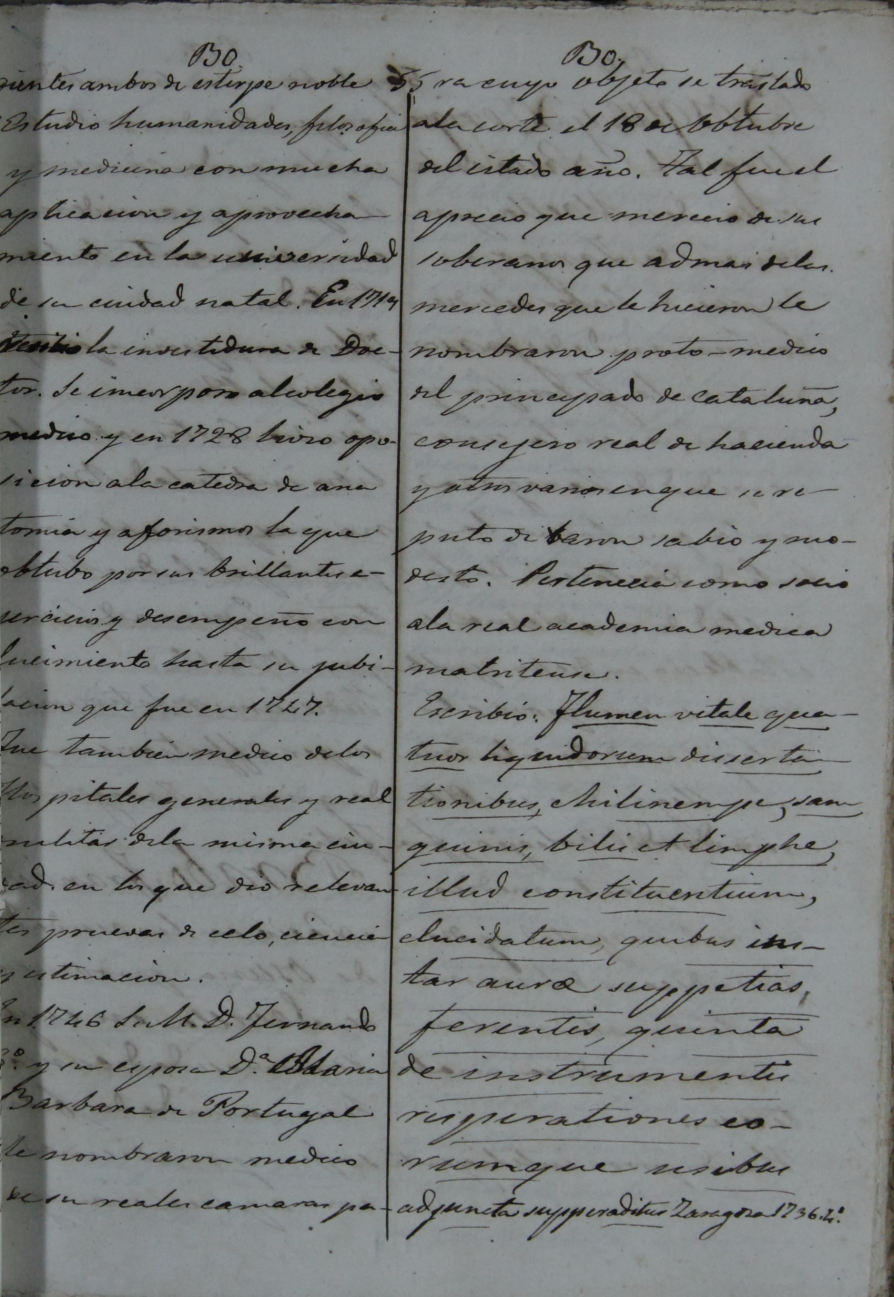 BO
dientes ambos de estirpe noble
Estudio humanidades, filosofia
y medicina con mucha
aplicacion y aprovecha-
miento en la universidad
de su ciudad natal. En 1714
la investidura de Doc-
tor. Se incorporo al colegio
medico y en 1728 hizo opo-
sicion a la catedra de ana
tomia y aforismos la que
obtubo por sus brillantes e-
gercicios y desempeño con
lucimiento hasta su jubi-
lacion que fue en 1747.
Fue tambien medico de los
Hospitales generales y real
militar de la misma ciu-
dad en los que dio relevan-
tes pruevas de celo, ciencia
y estimacion.
En 1746 S.M. D. Fernando
y su esposa D.ª Maria
Barbara de Portugal
le nombraron medico
de su reales camaras pa-
BO,
55 ra cuyo objeto se traslado
a la corte el 18 de Obtubre
del citado año. Tal fue el
aprecio que merecio de sus
soberanos que admas delas
mercedes que le hicieron le
nombraron proto-medico
del principado de Cataluña,
consejero real de hacienda
y otros varios en que se re-
puto de baron sabio y mo-
desto. Pertenecia como socio
a la real academia medica
matritense.
Escribio: Flumen vitale qua-
tuor liquidorum diserta
tionibus, chilinempe, san
guinis, bilis et limphe,
illud constituentium,
elucidatum, quibus ins-
tar auræ suppetias,
ferentis, quinta
de instrumentis
respirationes eo-
rumque usibus
adjuncta supperaditus Zaragoza 1736. 4º.